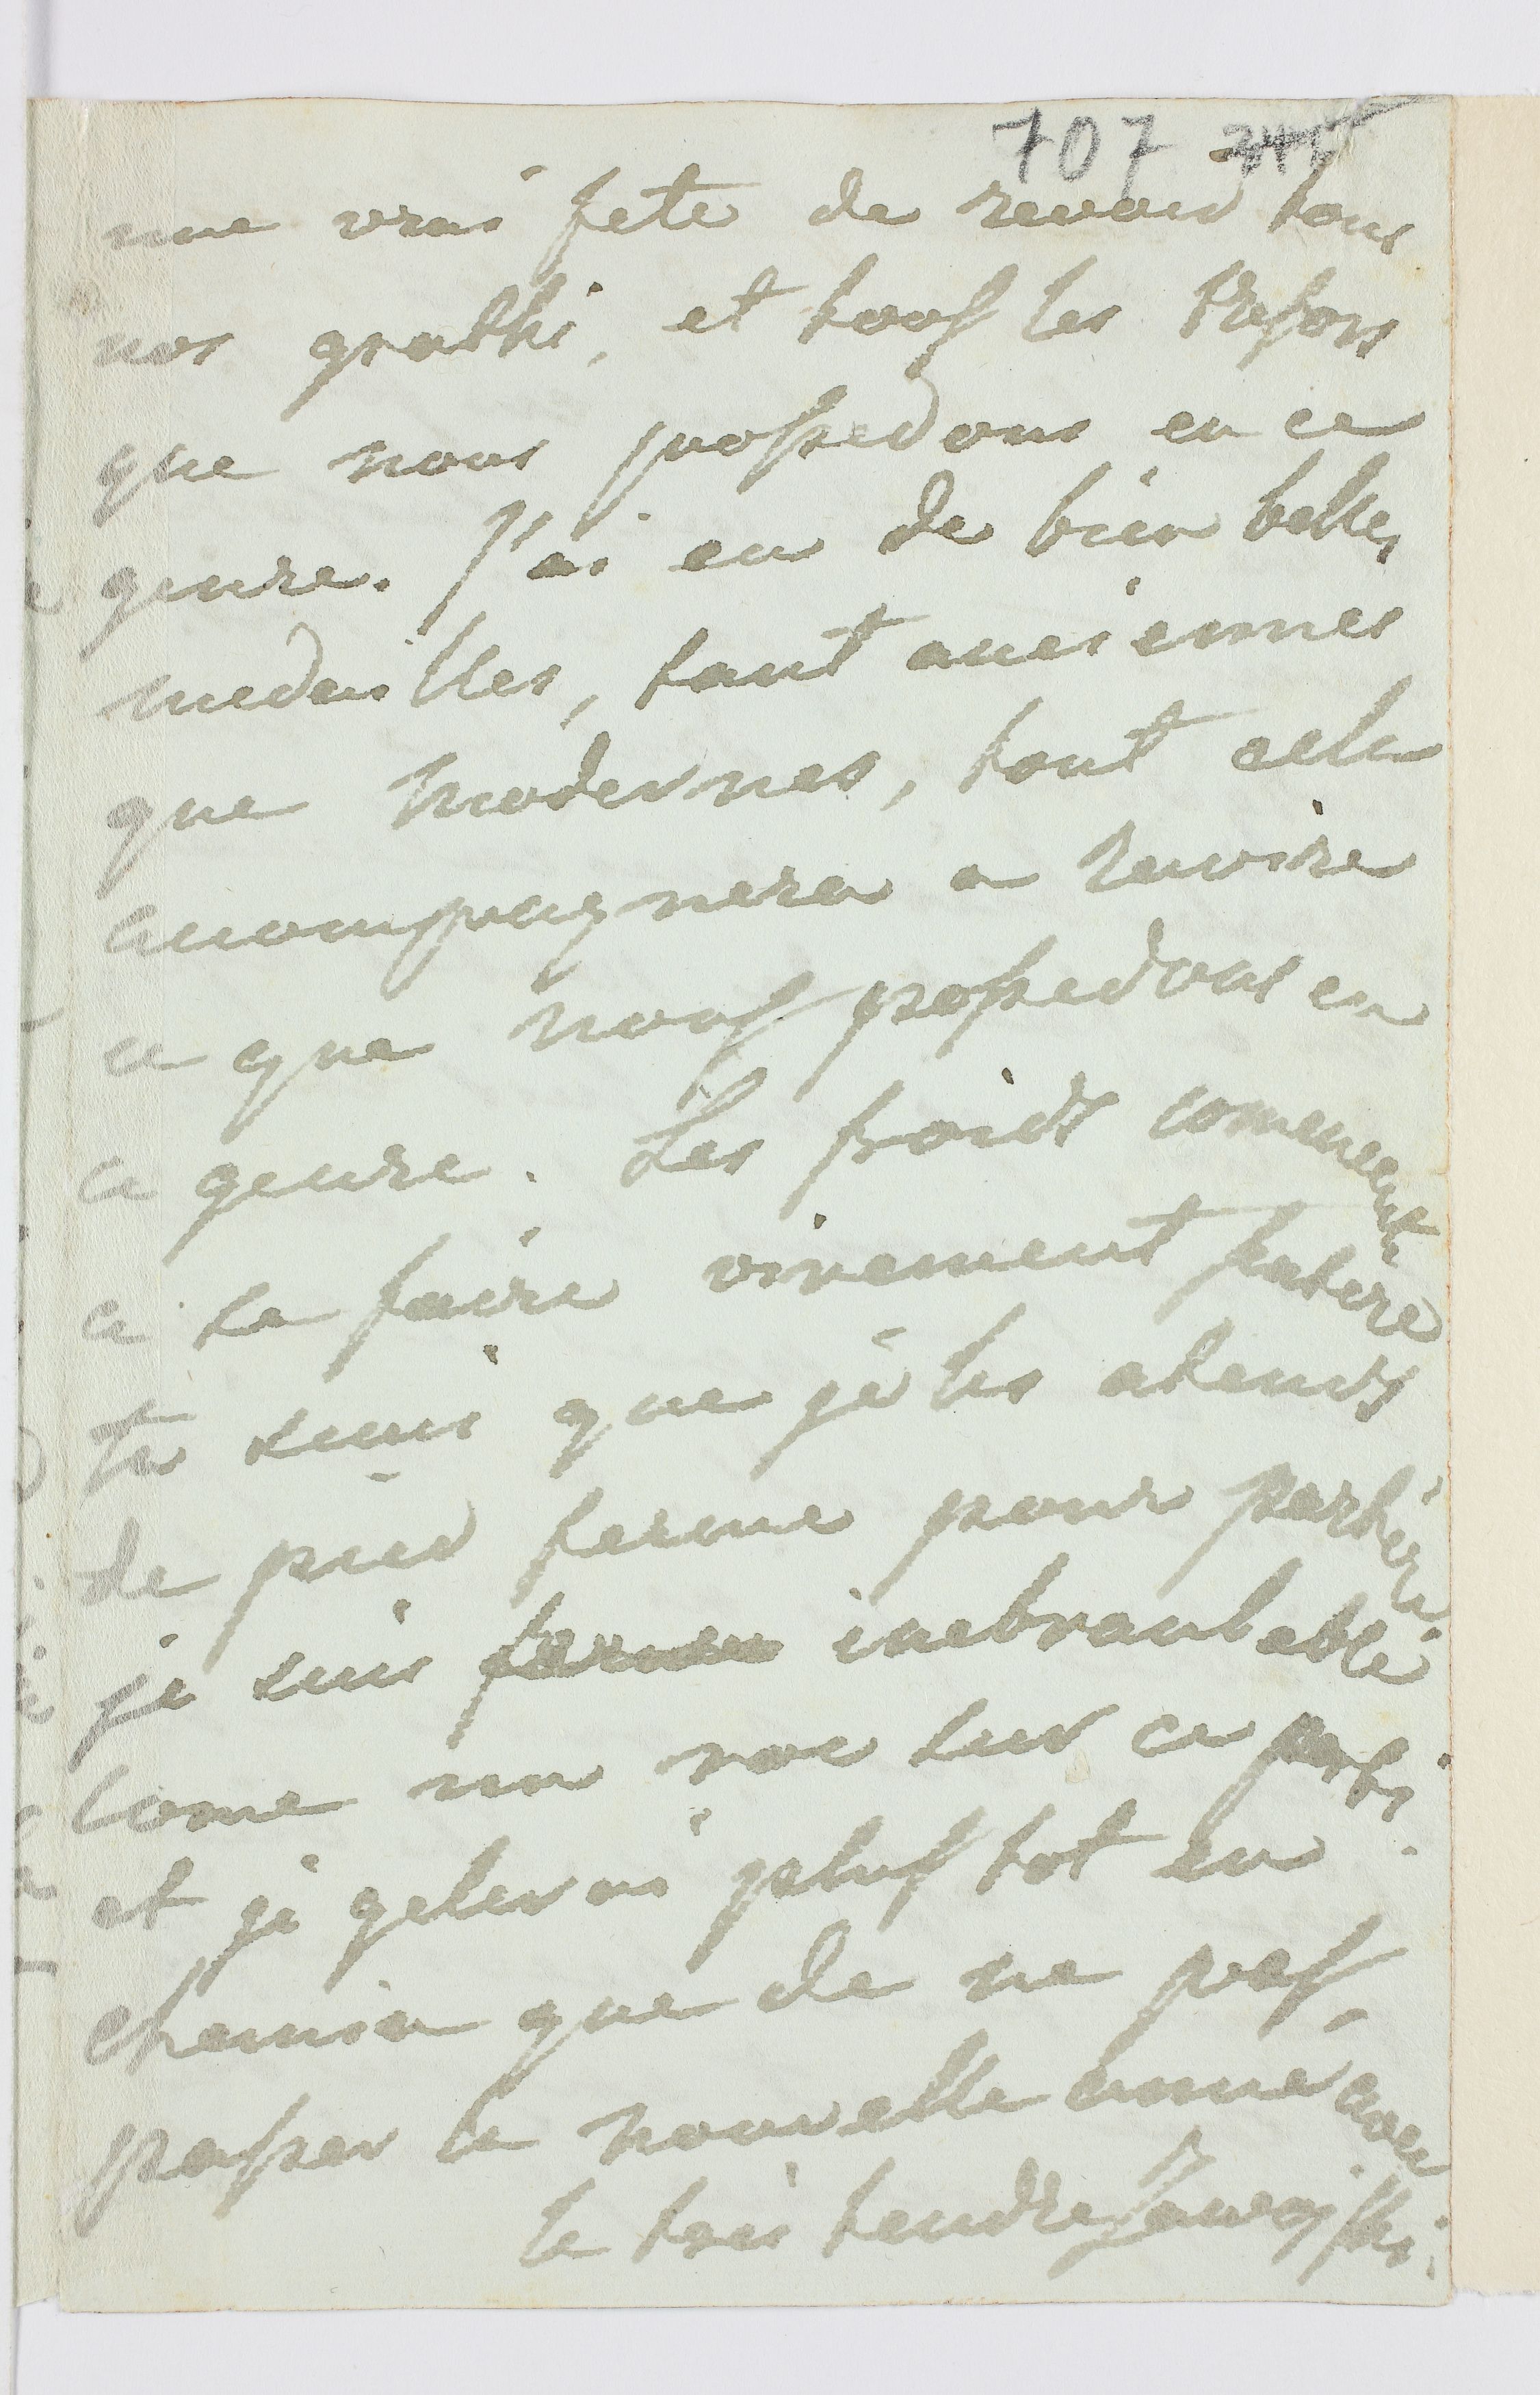 707
une vrai fete de revoir tous
nos grabki, et tous les tresors
que nous possedons en ce
genre. J'ai eu de bien belles
medailles, tant ansiennes
que modernes, tout cela
accompagnera a revoire
ce que nous possedons en
ce genre. Les froids comencent
a se faire vivement sentire
tu sais que je les atends
de pied ferme pour partire.
je suis ferme inebranlable
come un roc sur ce parti.
et je gelerai plus tot en
chemin que de ne pas,
passer la nouvelle année avec
le très tendre